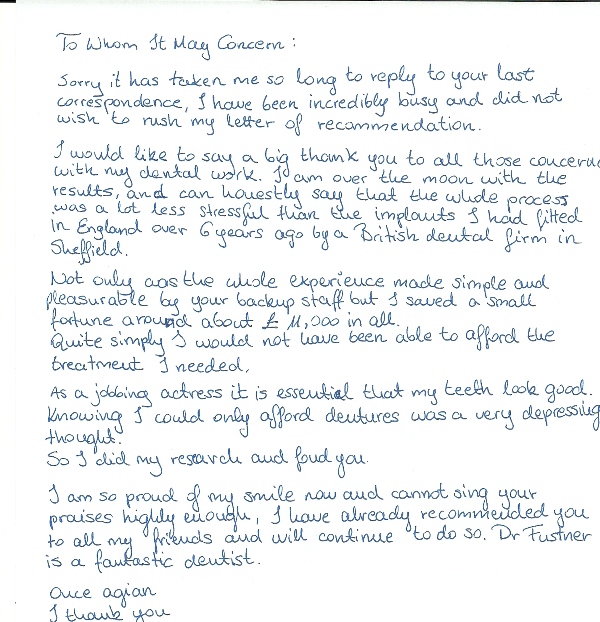 To Whom It May Concern:
Sorry it has taken me so long to reply to your last
correspondence, I have been incredibly busy and did not
wish to rush my letter of recommendation.
I would like to say a big thank you to all those concerne
with my dental work. I am over the moon with the
results, and can honestly say that the whole process
was a lot less stressful than the implants I had fitted
in England over 6 years ago by a British dental firm in
Sheffield.
Not only was the whole experience made simple and
pleasurable by your backup staff but I saved a small
fortune around about £ 11,000 in all.
Quite simply I would not have been able to afford the
treatment I needed,
As a jobbing actress it is essential that my teeth look good.
Knowing I could only afford dentures was a very depressing
thought.
So I did my research and foud you.
I am so proud of my smile now and cannot sing your
praises highly enough, I have already recommended you
to all my friends and will continue to do so. Dr Fustner
is a fantastic dentist.
Once agian
I thank you